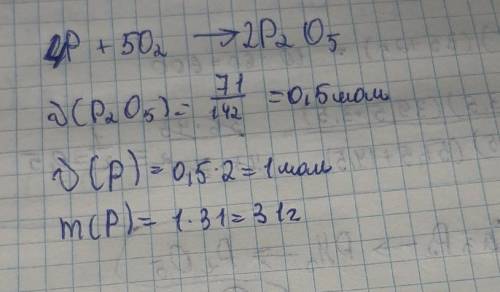 4P + 5O₂ → 2P₂O₅
ν(P₂O₅) = 71/142 = 0,5 мол
ν(P) = 0,5·2 = 1 мол
m(P) = 1·31 = 31г